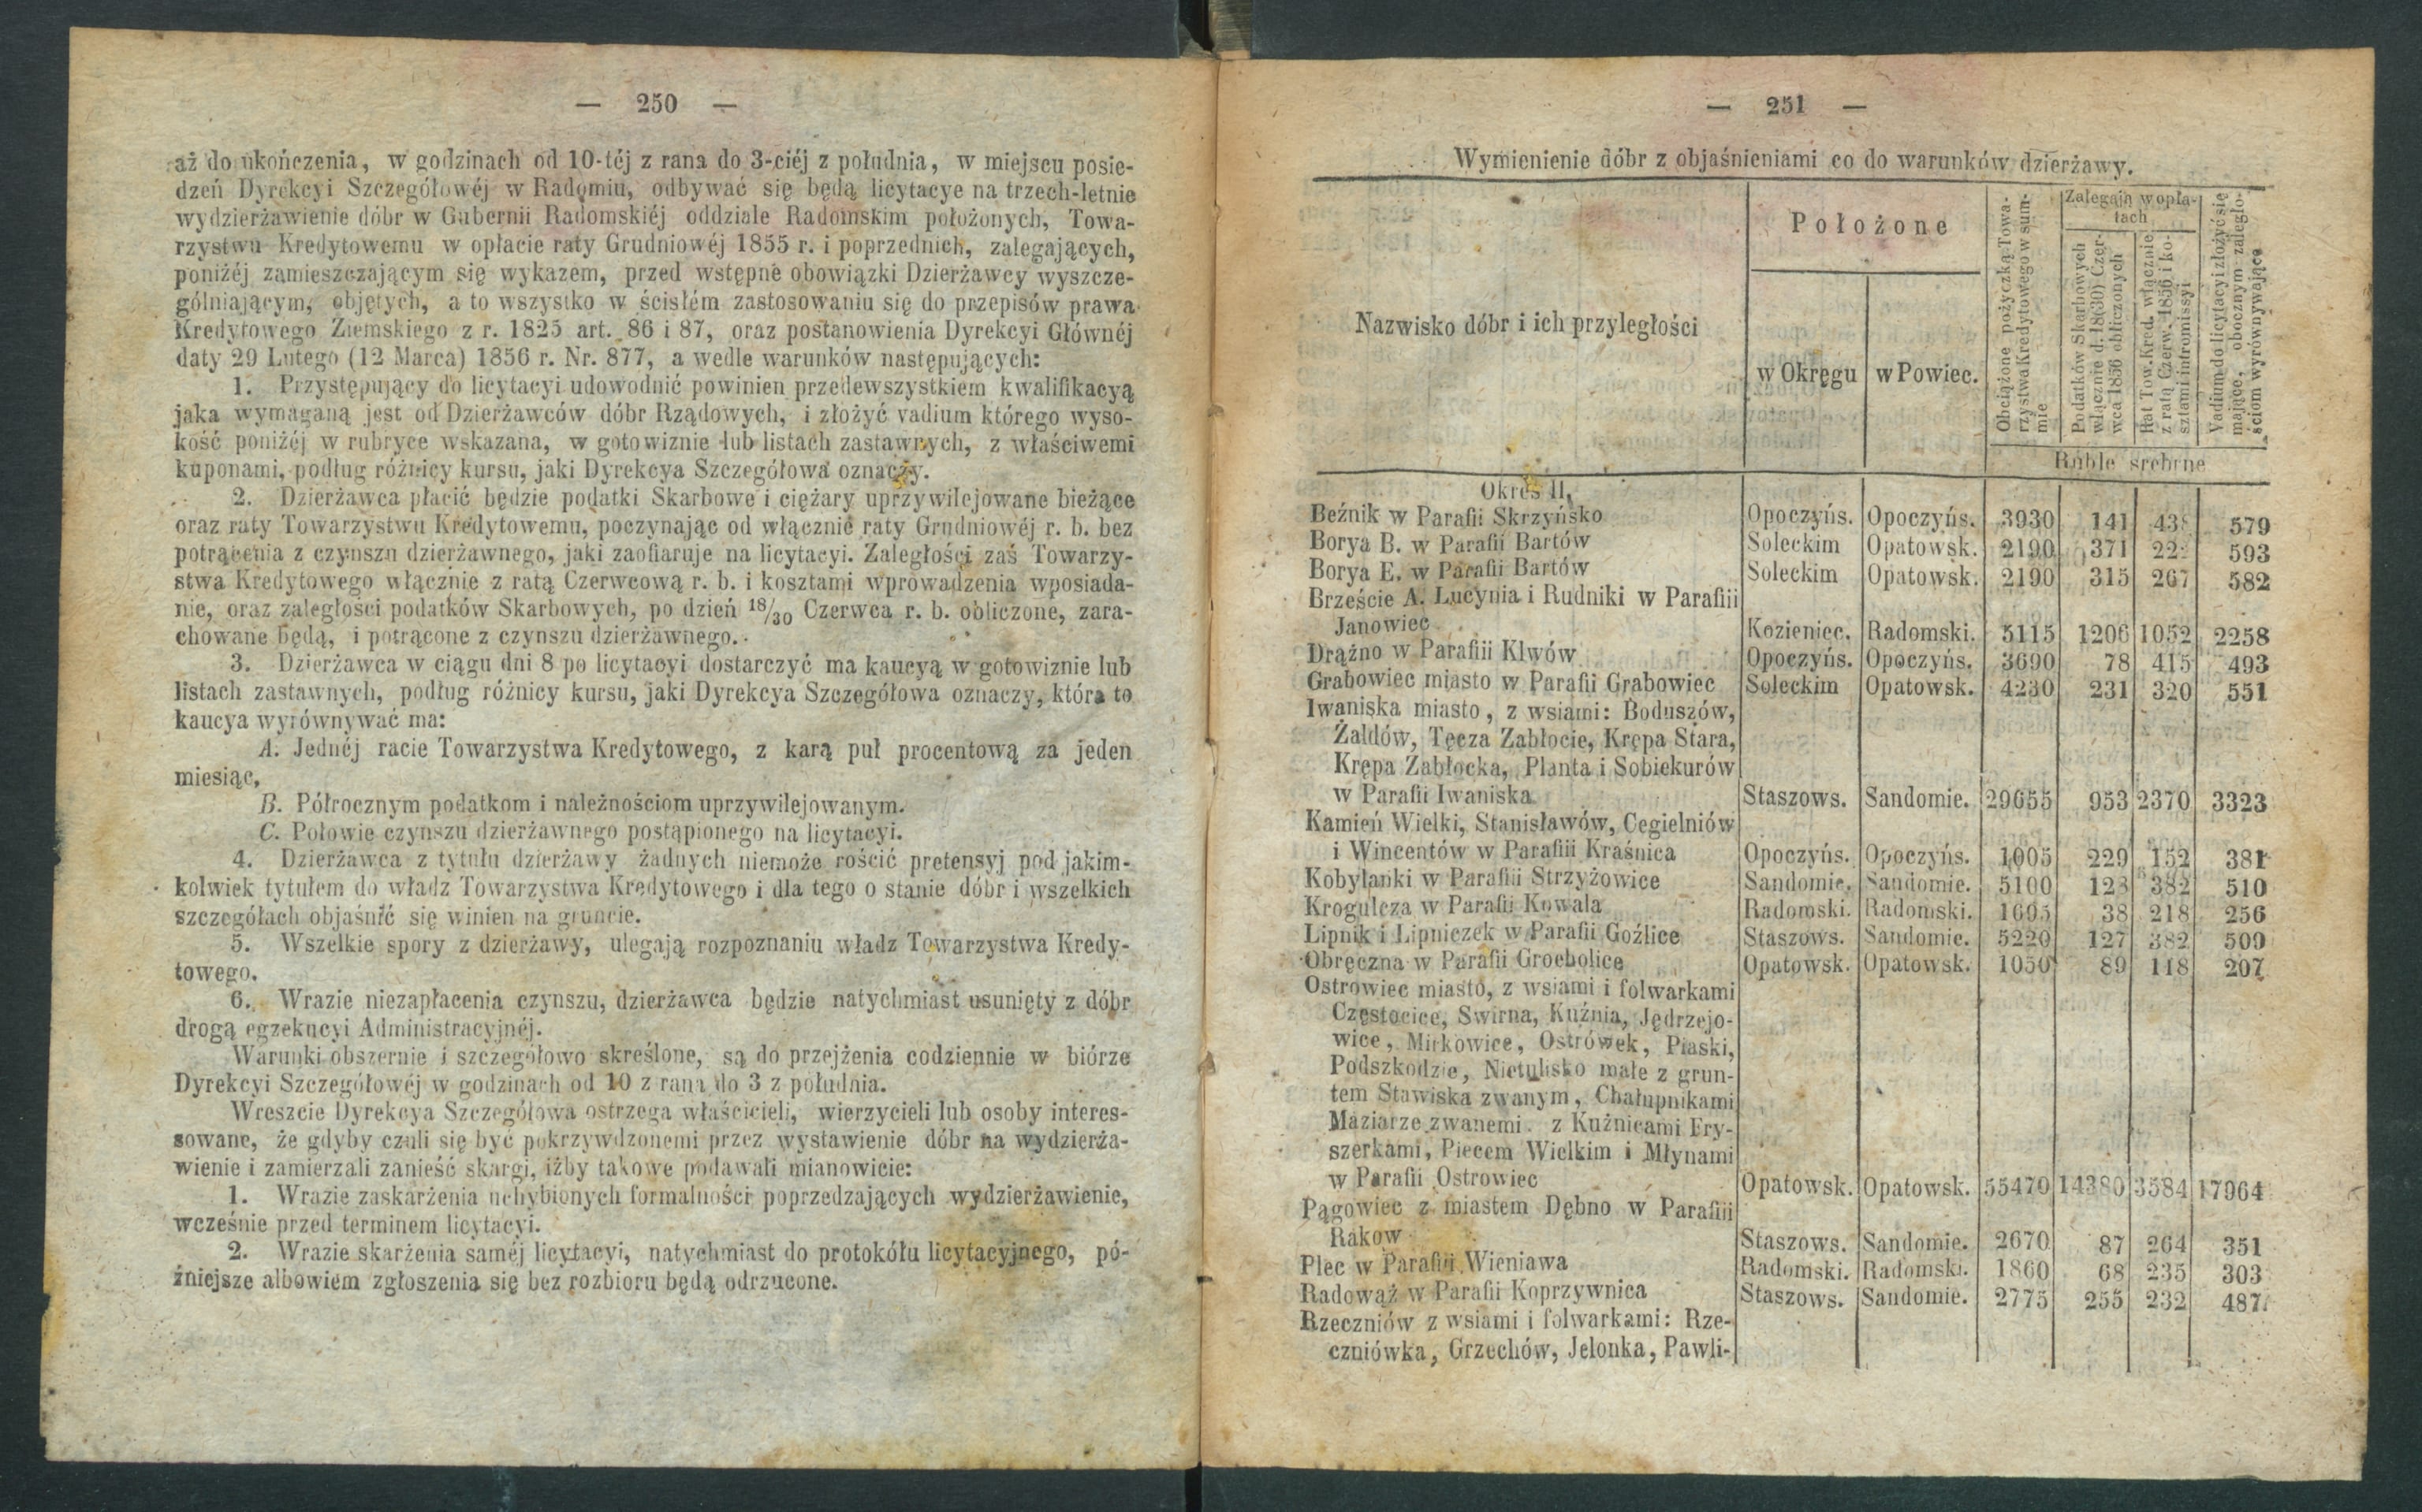 — 250 —
aż do ukończenia, w godzinach od 10-téj z rana do 3-ciéj z południa, w miejscu posie-
dzeń Dyrekcyi Szczegółowéj w Radomiu, odbywać się będą licytacye na trzech-letnie
wydzierżawienie dóbr w Gubernii Radomskiéj oddziale Radomskim położonych, Towa-
rzystwu Kredytowemu w opłacie raty Grudniowéj 1855 r. i poprzednich, zalegających,
poniżéj zamieszczającym się wykazem, przed wstępne obowiązki Dzierżawcy wyszcze-
gólniającym, objętych, a to wszystko w ścisłém zastosowaniu się do przepisów prawa
Kredytowego Ziemskiego z r. 1825 art. 86 i 87, oraz postanowienia Dyrekcyi Głównéj
daty 29 Lutego (12 Marca) 1856 r. Nr. 877, a wedle warunków następujących:
1. Przystępujący do licytacyi udowodnić powinien przedewszystkiem kwalifikacyą
jaka wymaganą jest od Dzierżawców dóbr Rządowych, i złożyć vadium którego wyso-
kość poniżéj w rubryce wskazana, w gotowiznie lub listach zastawnych, z właściwemi
kuponami, podług różnicy kursu, jaki Dyrekcya Szczegółowa oznaczy.
2. Dzierżawca płacić będzie podatki Skarbowe i ciężary uprzywilejowane bieżące
oraz raty Towarzystwu Kredytowemu, poczynając od włącznie raty Grudniowéj r. b. bez
potrącenia z czynszu dzierżawnego, jaki zaofiaruje na licytacyi. Zaległości zaś Towarzy-
stwa Kredytowego włącznie z ratą Czerwcową r. b. i kosztami wprowadzenia wposiada-
nie, oraz zaległości podatków Skarbowych, po dzień 18/30 Czerwca r. b. obliczone, zara-
chowane będą, i potrącone z czynszu dzierżawnego.
3. Dzierżawca w ciągu dni 8 po licytacyi dostarczyć ma kaucyą w gotowiznie lub
listach zastawnych, podług różnicy kursu, jaki Dyrekcya Szczegółowa oznaczy, która to
kaucya wyrównywać ma:
A. Jednéj racie Towarzystwa Kredytowego, z karą puł procentową za jeden
miesiąc,
B. Półrocznym podatkom i należnościom uprzywilejowanym.
C. Połowie czynszu dzierżawnego postąpionego na licytacyi.
4. Dzierżawca z tytułu dzierżawy żadnych niemoże rościć pretensyj pod jakim-
kolwiek tytułem do władz Towarzystwa Kredytowego i dla tego o stanie dóbr i wszelkich
szczegółach objaśnić się winien na gruncie.
5. Wszelkie spory z dzierżawy, ulegają rozpoznaniu władz Towarzystwa Kredy-
towego.
6. Wrazie niezapłacenia czynszu, dzierżawca będzie natychmiast usunięty z dóbr
drogą egzekucyi Administracyjnéj.
Warunki obszernie i szczegółowo skreślone, są do przejżenia codziennie w biórze
Dyrekcyi Szczegółowéj w godzinach od 10 z rana do 3 z południa.
Wreszcie Dyrekcya Szczegółowa ostrzega właścicieli, wierzycieli lub osoby interes-
sowane, że gdyby czuli się być pokrzywdzonemi przez wystawienie dóbr na wydzierża-
wienie i zamierzali zanieść skargi, iżby takowe podawali mianowicie:
1. Wrazie zaskarżenia uchybionych formalności poprzedzających wydzierżawienie,
wcześnie przed terminem licytacyi.
2. Wrazie skarżenia saméj licytacyi, natychmiast do protokółu licytacyjnego, pó-
źniejsze albowiem zgłoszenia się bez rozbioru będą odrzucone.
— 251 —
Wymienienie dóbr z objaśnieniami co do warunków dzierżawy.
Nazwisko dóbr i ich przyległości
Położone
w Okręgu
w Powiec.
Obciążone pożyczką Towa-
rzystwa Kredytowego w sum-
mie
Zalegają w opła-
tach
Podatków Skarbowych
włącznie d. 18(30) Czer-
wca 1856 obliczonych
Rat Tow. Kred. włącznie
z ratą Czerw. 1856 i ko-
sztami intromissyi
Vadium do licytacyi złożyć się
mające, obocznym zaległo-
ściom wyrównywające
Ruble srebrne
Okres II.
Beźnik w Parafii Skrzyńsko Opoczyńs. Opoczyńs. 3930 141 438 579
Borya B. w Parafii Bartów Soleckim Opatowsk. 2190 371 22 593
Borya E. w Parafii Bartów Soleckim Opatowsk. 2190 315 267 582
Brzeście A. Lucynia i Rudniki w Parafiii
Janowiec Kozieniec. Radomski. 5115 1206 1052 2258
Drążno w Parafiii Klwów Opoczyńs. Opoczyńs. 3690 78 415 493
Grabowiec miasto w Parafii Grabowiec Soleckim Opatowsk. 4230 231 320 551
Iwaniska miasto, z wsiami: Boduszów,
Żałdów, Tęcza Zabłocie, Krępa Stara,
Krępa Zabłocka, Planta i Sobiekurów
w Parafii Iwaniska Staszows. Sandomie. 29655 953 2370 3323
Kamień Wielki, Stanisławów, Cegielniów
i Wincentów w Parafiii Kraśnica Opoczyńs. Opoczyńs. 1005 229 152 381
Kobylanki w Parafiii Strzyżowice Sandomie. Sandomie. 5100 128 382 510
Krogulcza w Parafii Kowala Radomski. Radomski. 1695 38 218 256
Lipnik i Lipniczek w Parafii Goźlice Staszows. Sandomie. 5220 127 382 509
Obręczna w Parafii Grocholice Opatowsk. Opatowsk. 1050 89 118 207
Ostrowiec miasto, z wsiami i folwarkami
Częstocice, Swirna, Kuźnia, Jędrzejo-
wice, Mirkowice, Ostrówek, Piaski,
Podszkodzie, Nietulisko małe z grun-
tem Stawiska zwanym, Chałupnikami
Maziarze zwanemi z Kuźnicami Fry-
szerkami, Piecem Wielkim i Młynami
w Parafii Ostrowiec Opatowsk. Opatowsk. 55470 14380 3584 17964
Pągowiec z miastem Dębno w Parafiii
Rakow Staszows. Sandomie. 2670 87 264 351
Plec w Parafiii Wieniawa Radomski. Radomski. 1860 68 235 303
Radowąż w Parafii Koprzywnica Staszows. Sandomie. 2775 255 232 487
Rzeczniów z wsiami i folwarkami: Rze-
czniówka, Grzechów, Jelonka, Pawli-